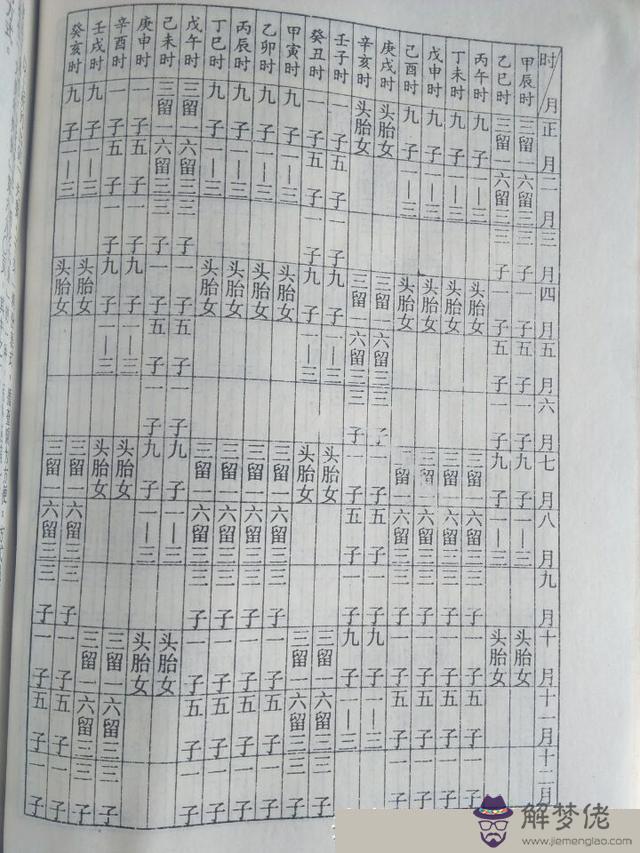 时/月 正月 二月 三月 四月 五月 六月 七月 八月 九月 十月 十一月 十二月
甲辰时 三留一 六留二 三子 一子 五子 一子 九子 一—三 头胎女
乙巳时 三留一 六留二 三子 一子 五子 一子 九子 一—三 头胎女
丙午时 九子 一—三 头胎女 三留一 六留二 三子 一子 五子 一子
丁未时 九子 一—三 头胎女 三留一 六留二 三子 一子 五子 一子
戊申时 九子 一—三 头胎女 三留一 六留二 三子 一子 五子 一子
己酉时 九子 一—三 头胎女 三留一 六留二 三子 一子 五子 一子
庚戌时 头胎女 三留一 六留二 三子 一子 五子 一子 九子 一—三
辛亥时 头胎女 三留一 六留二 三子 一子 五子 一子 九子 一—三
壬子时 一子 五子 一子 九子 一—三 头胎女 三留一 六留二 三子
癸丑时 一子 五子 一子 九子 一—三 头胎女 三留一 六留二 三子
甲寅时 九子 一—三 头胎女 三留一 六留二 三子 一子 五子 一子
乙卯时 九子 一—三 头胎女 三留一 六留二 三子 一子 五子 一子
丙辰时 九子 一—三 头胎女 三留一 六留二 三子 一子 五子 一子
丁巳时 九子 一—三 头胎女 三留一 六留二 三子 一子 五子 一子
戊午时 三留一 六留二 三子 一子 五子 一子 九子 一—三 头胎女
己未时 三留一 六留二 三子 一子 五子 一子 九子 一—三 头胎女
庚申时 一子 五子 一子 九子 一—三 头胎女 三留一 六留二 三子
辛酉时 一子 五子 一子 九子 一—三 头胎女 三留一 六留二 三子
壬戌时 九子 一—三 头胎女 三留一 六留二 三子 一子 五子 一子
癸亥时 九子 一—三 头胎女 三留一 六留二 三子 一子 五子 一子
解梦佬
www.jiemenglao.com